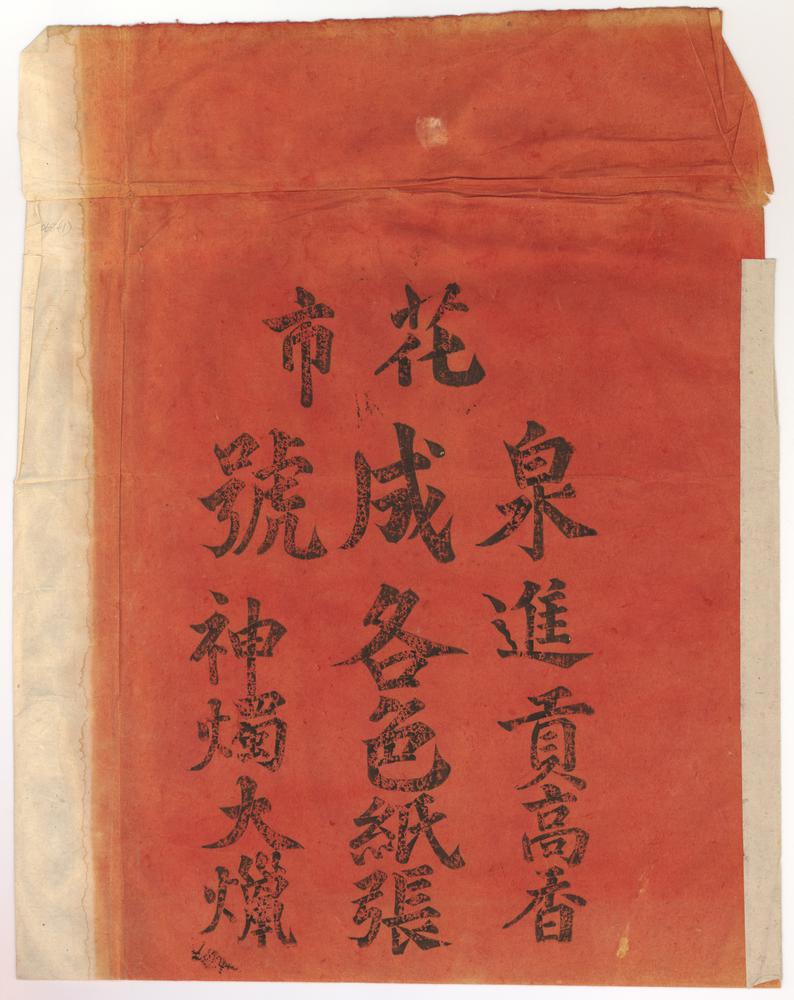 花市
泉成號
進貢高香
各色紙張
神燭大爉